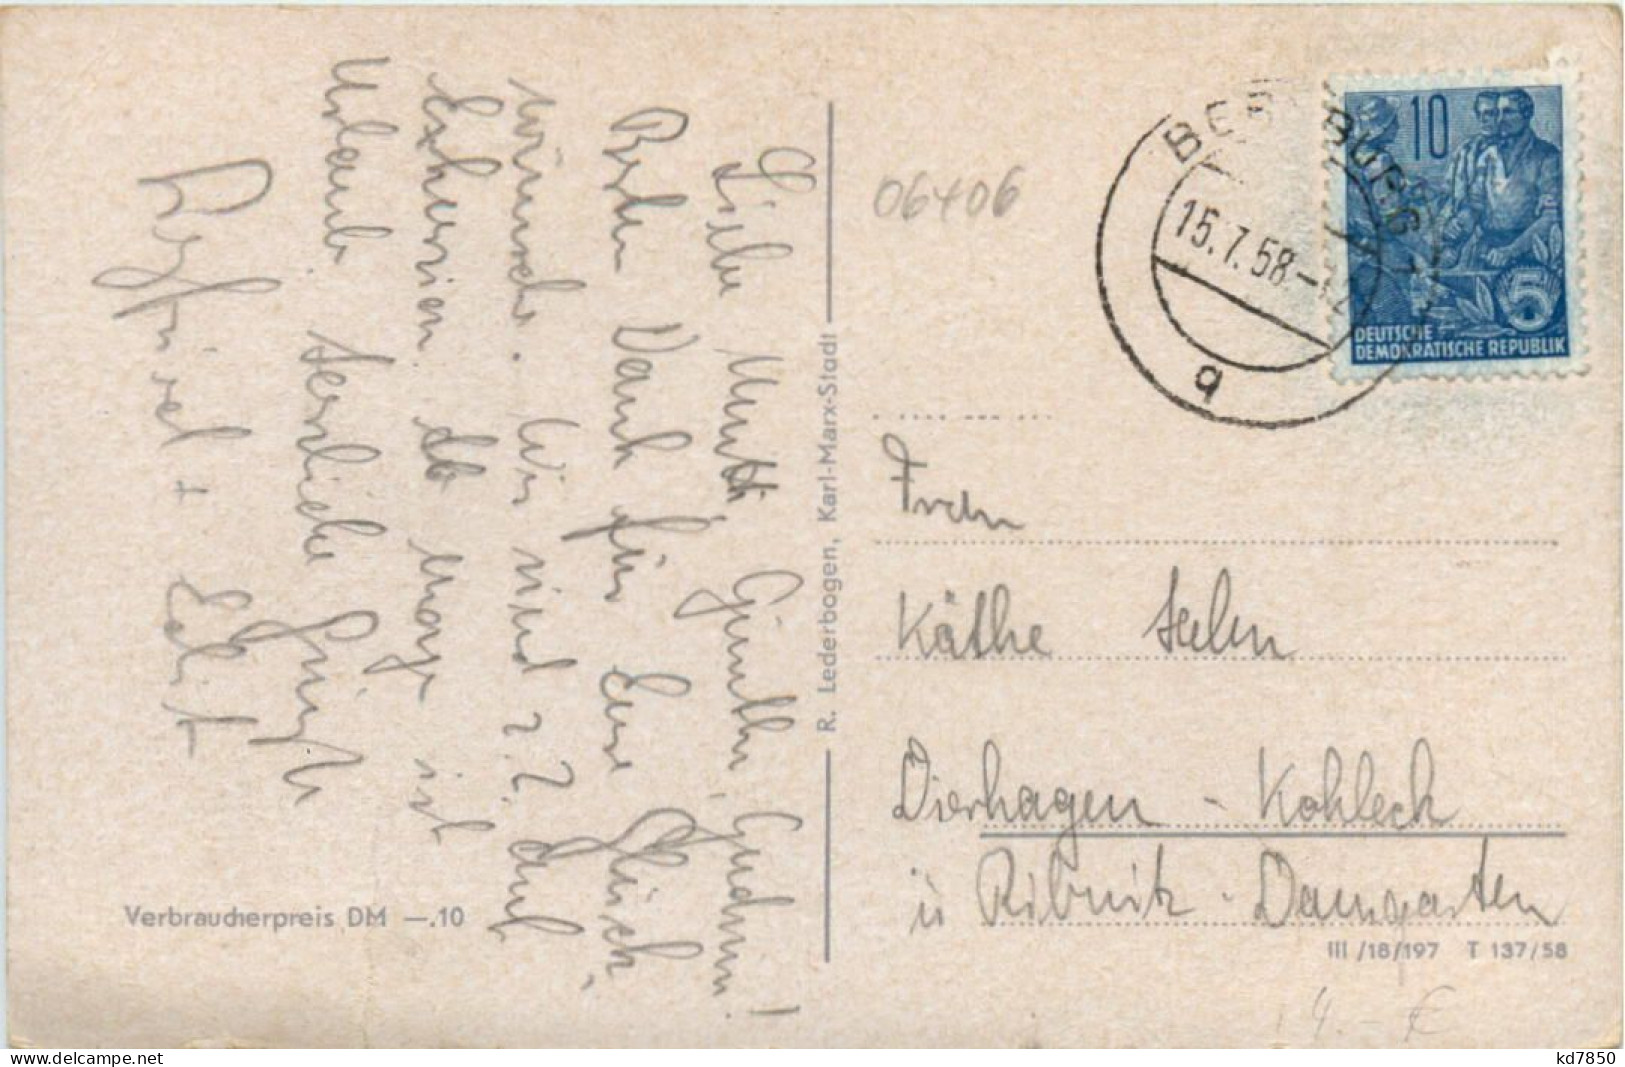 Liebe Mutti, Günther, Gudrun!
Besten Dank für Eure Glück-
wünsche. Wir sind z. Z. auf
Exkursion. Ab morge ist
Urlaub. Herzliche Grüße
Edit
Verbraucherpreis DM —.10
R. Lederbogen, Karl-Marx-Stadt
06406
BERNBURG
15.7.58-12
a
10
5
DEUTSCHE
DEMOKRATISCHE REPUBLIK
Frau
Käthe
Dierhagen -
ü Ribnitz - Damgarten
III /18/197 T 137/58
4.- €
kd7850